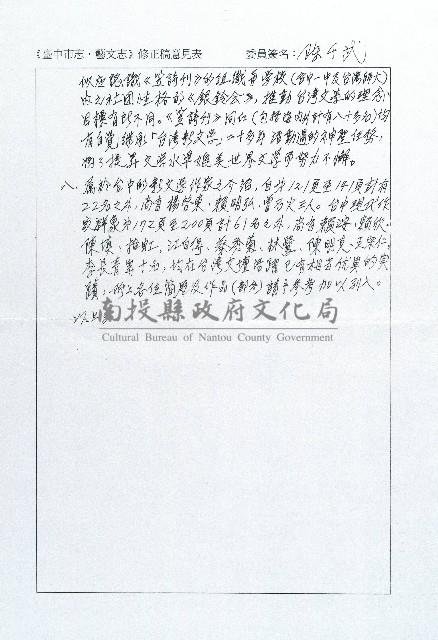 《臺中市志·藝文志》修正稿意見表 委員簽名：陳千武
似應認識《笠詩刊》的組織和學校（台中一中及台灣師大）
內之社團性格的《銀鈴會》，推動台灣文學的理念、
目標有所不同。《笠詩刊》同仁（包括海內外計有八十多人）均
有自覺，繼承「台灣新文學」二十多年活動過的神聖任務，
為了提昇文學水準進美世界文學而努力不懈。
八、屬於台中的新文學作家之介紹，自廿121頁至141頁計有
22名之外，尚有楊啓東、賴明弘、曾乃文三人。台中現代作
家群象 172頁至200頁計61名之外，尚有賴洝、賴欣、
陳填、柏虹、江自得、蔡秀菊、林鷺、陳明克、王宗仁、
李長青等十名，於在台灣文壇活躍已有相當優異的實
績，附上各位簡歷及作品（部分）請予參考加以列入。
以上
南投縣政府文化局
Cultural Bureau of Nantou County Government